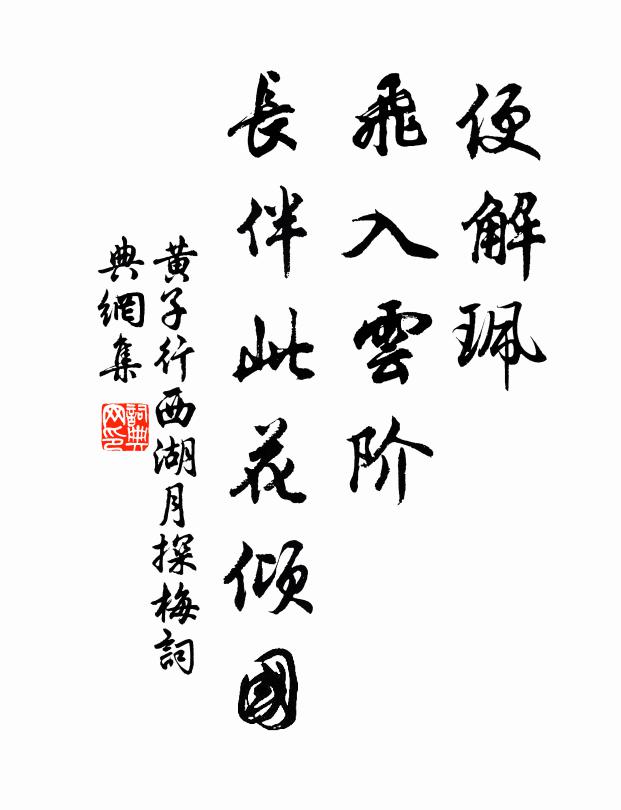 便解珮
飛入雲阶
長伴此花傾國
黃子行西湖月探梅詞
典網集
詞典
网印